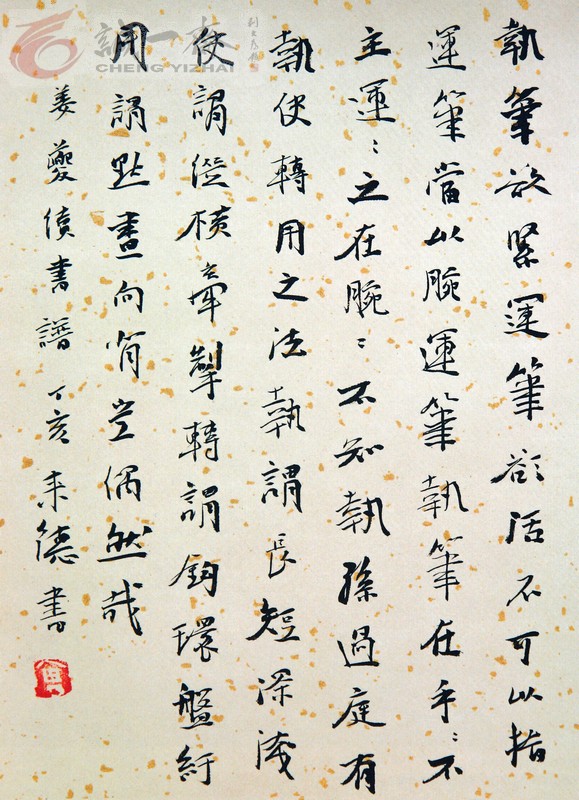 執筆欲緊運筆欲活不可以指
運筆當以腕運筆執筆在手〻不
主運〻之在腕〻不知執孫過庭有
執使轉用之法執謂長短深淺
使謂縱橫牽掣轉謂鉤環盤紆
用謂點畫向背豈偶然哉
姜夔續書譜丁亥来德書
CHENG YIZHAI